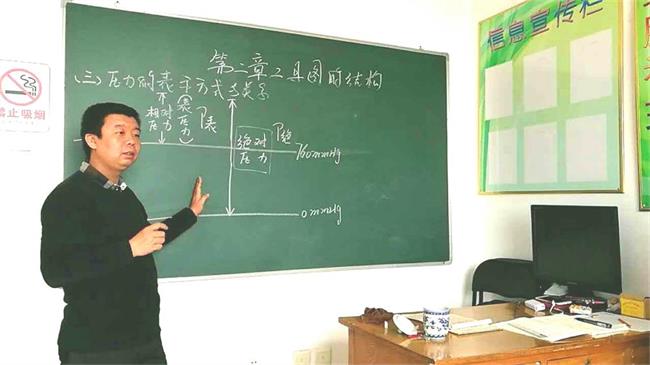 禁止吸烟
信息宣传栏
第二章工具图的结构
(三)压力的表示方式与关系
相对压力
P表
P绝
绝对
压力
760mmHg
0mmHg